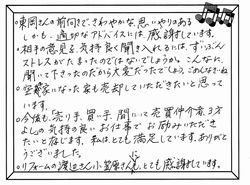 ・東岡さんの前向きでさわやかな、思いやりのある
しかも、適切なアドバイスには感謝しています。
・相手の意見を、気持良く聞き入れるには、ずいぶん
ストレスがたまったのではないでしょうか。こんなに、
聞いて下さったのだから大変だったでしょう。ごめんなさいね
・空家になった家も売却していただきたいと思って
います。
・今後も、売り手、買い手、間にって売買仲介者、3方
よしの気持の良いお仕事でお励みいただき
たいと存じます。私はとても満足しています。ありがと
うございました。
・リフォームの渡辺さん、小笠原さんにもとても感謝しています。